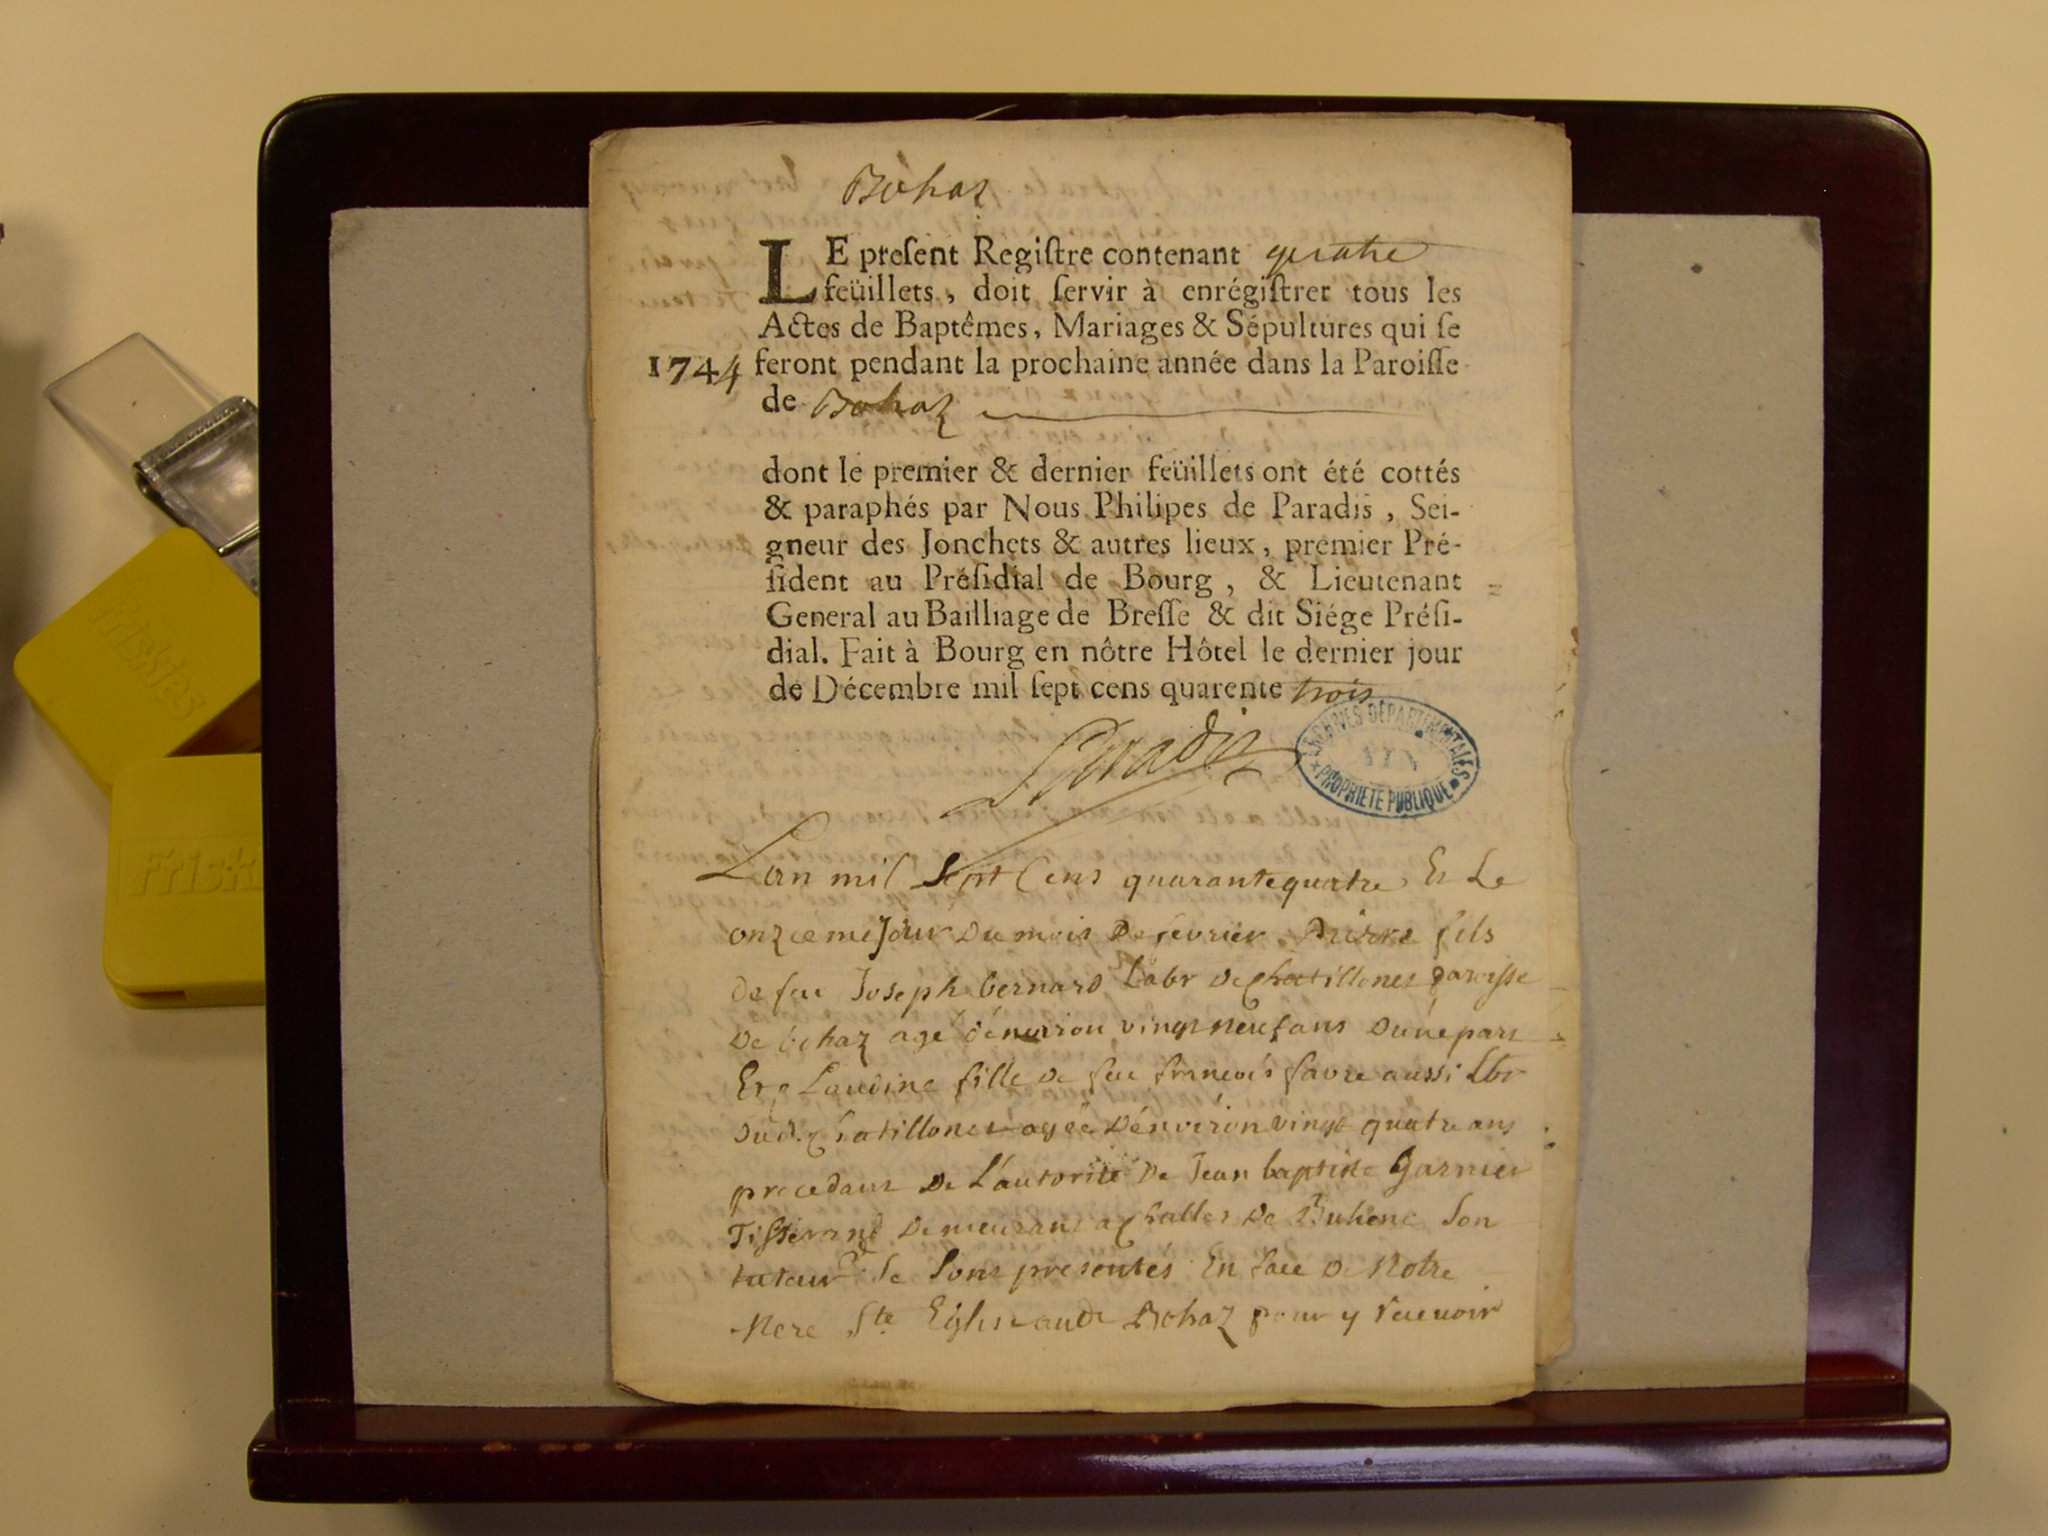 Bohaz
LE preſent Regiſtre contenant quatre
feüillets, doit ſervir à enrégiſtrer tous les
Actes de Baptêmes, Mariages & Sépultures qui ſe
1744 feront pendant la prochaine année dans la Paroiſſe
de Bohaz
dont le premier & dernier feüillets ont été cottés
& paraphés par Nous Philipes de Paradis, Sei-
gneur des Jonchets & autres lieux, premier Pré-
ſident au Préſidial de Bourg, & Lieutenant
General au Bailliage de Breſſe & dit Siége Préſi-
dial. Fait à Bourg en nôtre Hôtel le dernier jour
de Décembre mil ſept cens quarente trois
Paradis
ARCHIVES DÉPARTEMENTALES
PROPRIÉTÉ PUBLIQUE
Lan mil Sept Cens quarante quatre Et Le
onzieme Jour Du mois De fevrier Pierre fils
De feu Joseph bernard Labr De chatillonet paroisse
De bohaz agé d'environ vingt neuf ans Dúne part
Et Laudine fille De feu francois favre aussi Lbr
Dud. chatillonet agée D'environ vingt quatre ans
procedant De L'autorité De Jean baptiste Garnier
Tisserand Demeurant a challes De Buhenc Son
tuteur Se Sont presentés En face De Notre
Mere Ste Eglise aud Bohaz pour y recevoir
Friskies
Friski